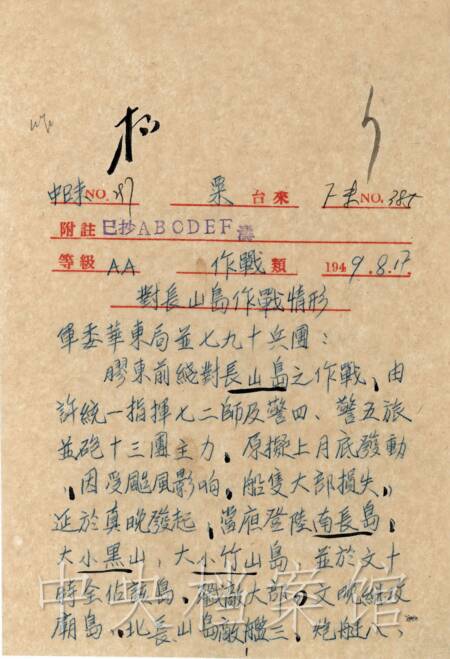 NO. 297 栗 台來 NO. 385
附註 已抄ABCDEF
等級 AA 作戰 類 1949.8.17
對長山島作戰情形
軍委華東局並七九十兵團：
膠東前綫對長山島之作戰、由
許統一指揮七二師及警四、警五旅
並砲十三團主力、原擬上月底發動
、因受颶風影响、船隻大部損失、
延於真晚發起、當夜登陸南長島、
大小黑山、大小竹山島、並於文十
時全佔該島、殲敵大部、文晚續攻
廟島、北長山島敵艦三、炮艇八、
中央檔案館